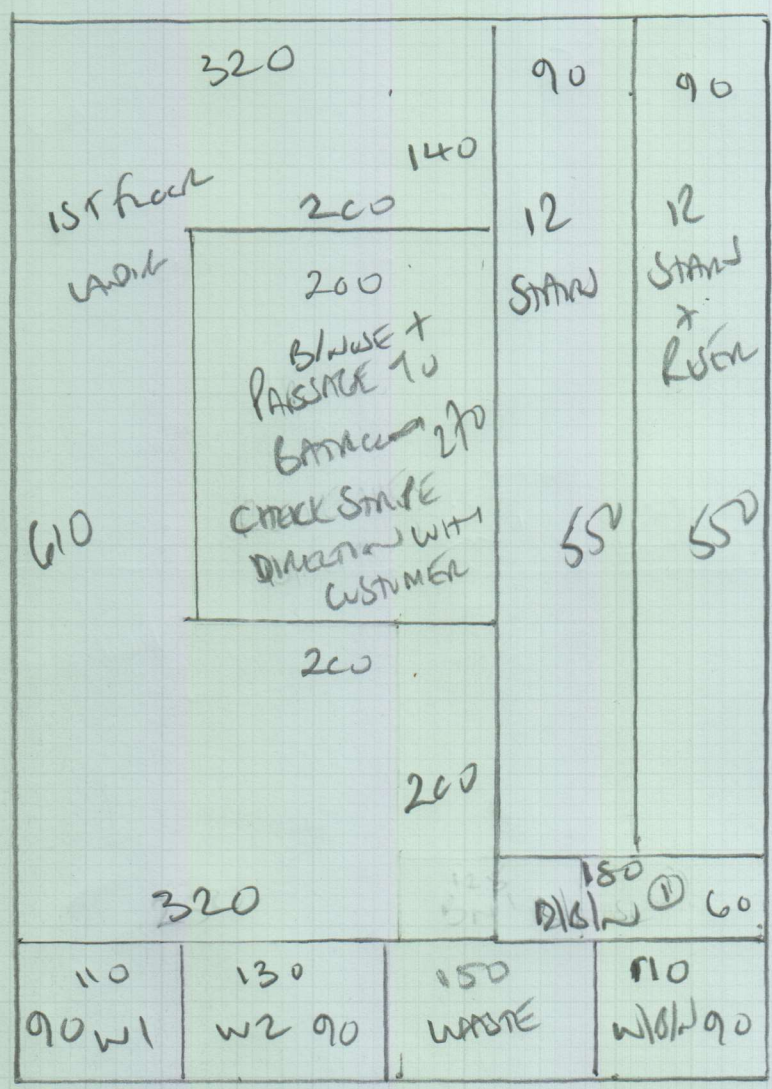 320
90
90
140
1ST FLOOR
LANDING
200
12
STAIRS
12
STAIRS
+
RISER
200
PASSAGE TO
BATHROOM 270
CHECK STRIPE
DIRECTION WITH
CUSTOMER
610
550
550
200
200
320
180
1
60
110
90 W1
130
W2 90
150
WASTE
110
90